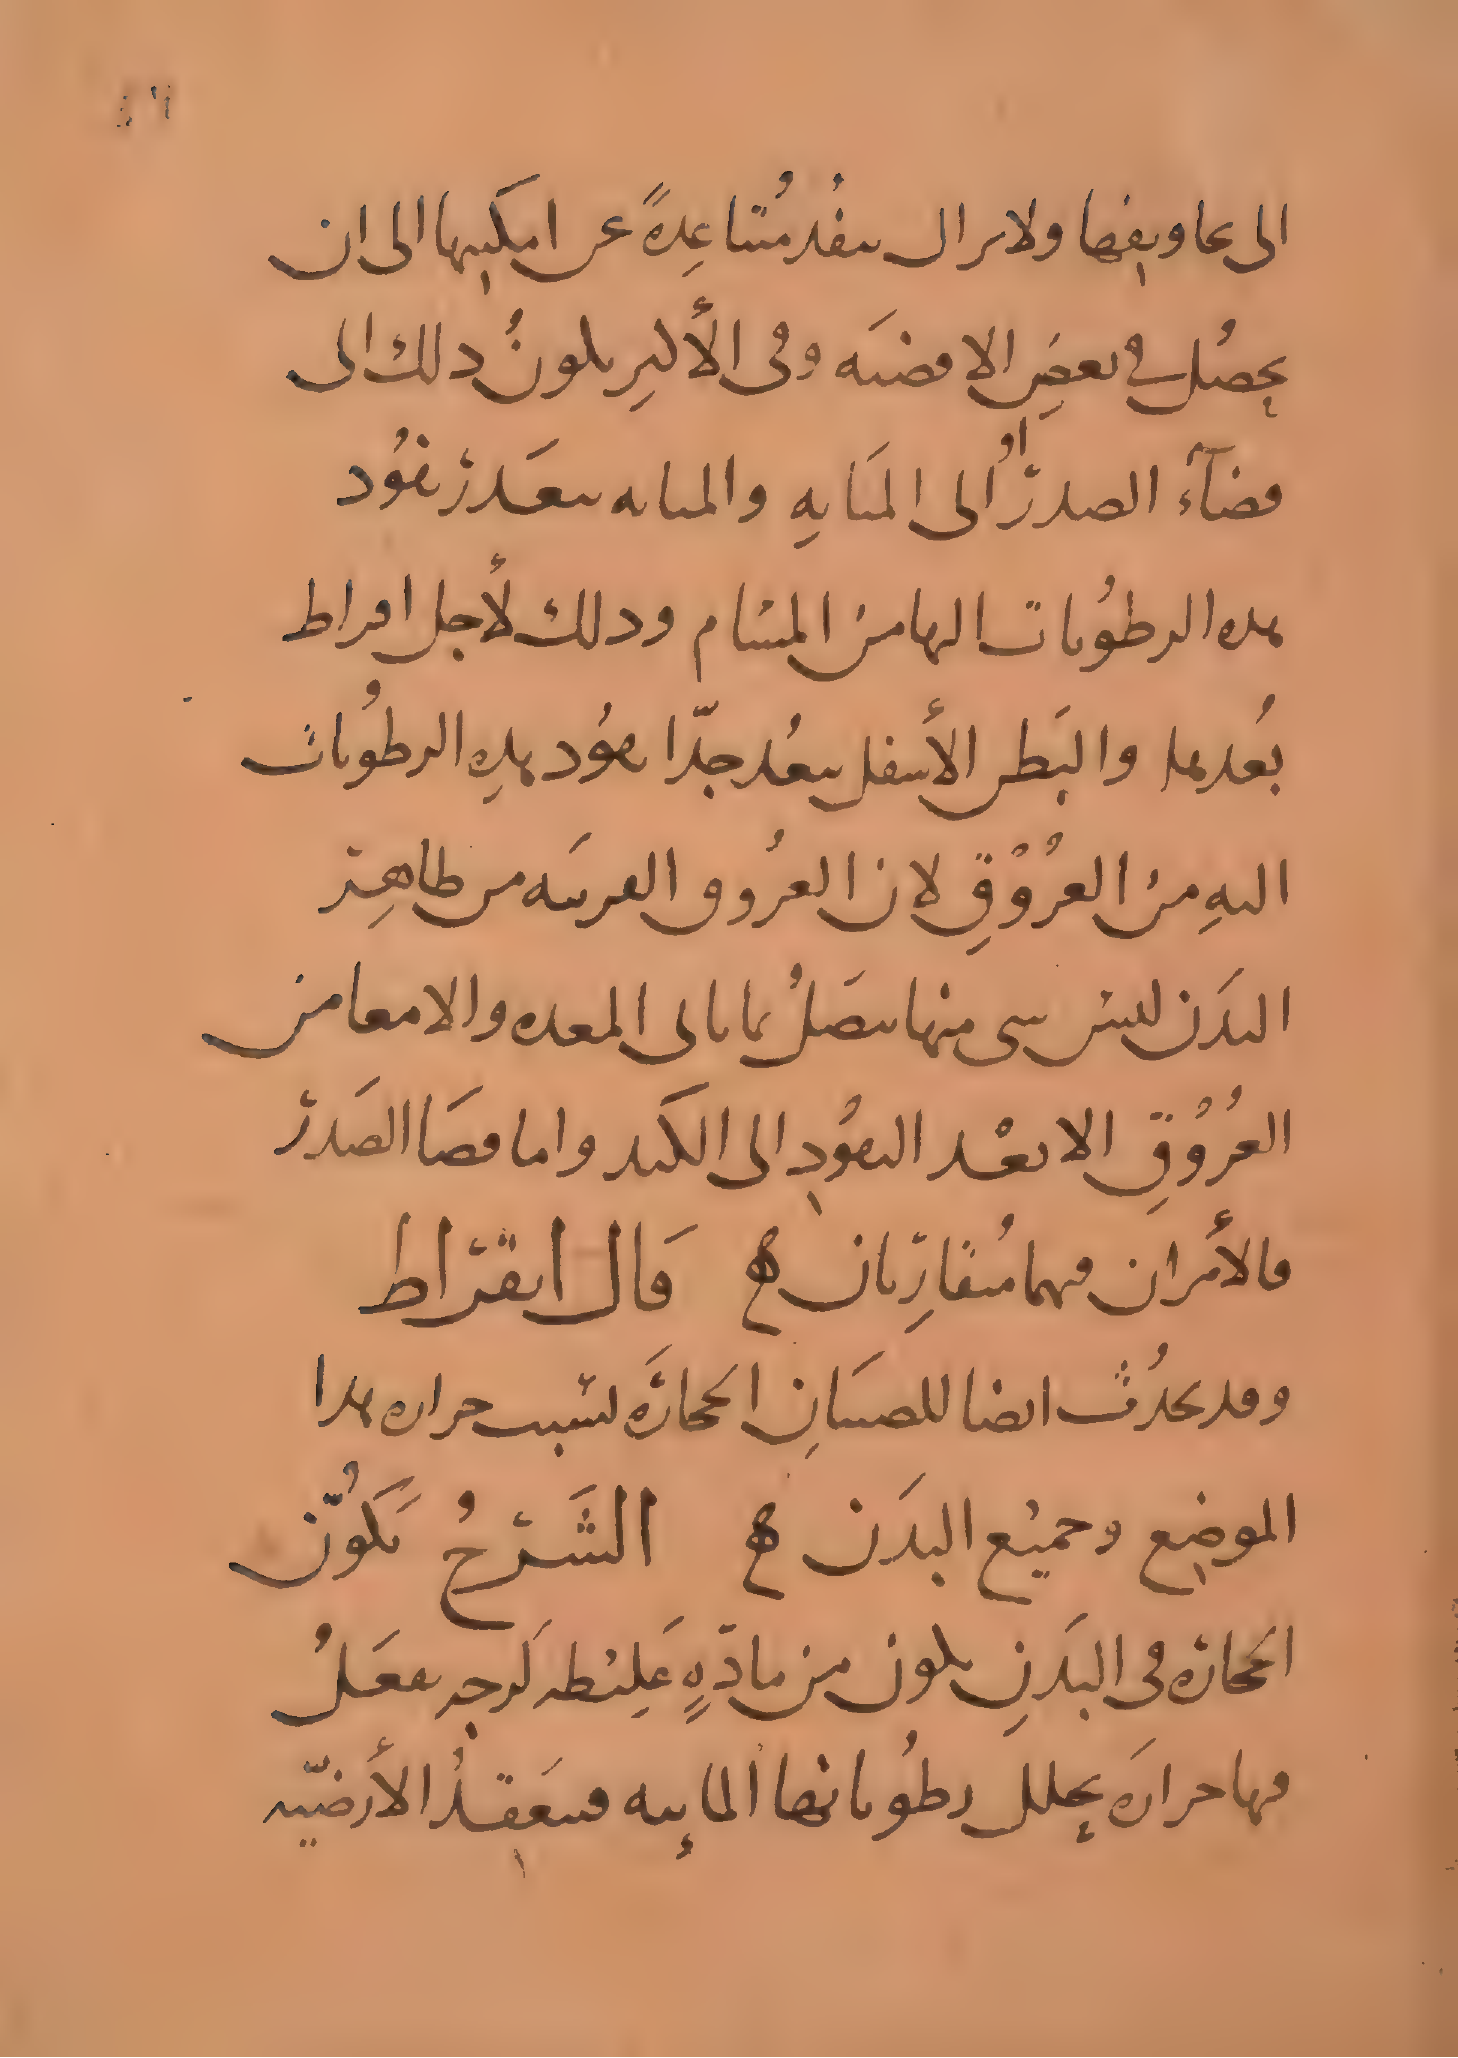 الى تجاويفها ولا تزال تنفد مُتباعِدةً عن امكنتها الى ان
يحصُل في بعضِ الافضيَه وفى الأكثرِ يكونُ ذلك الى
فضآء الصدر أو الى المثانهِ والمثانه يتعَدر نفُود
هذه الرطُوبات اليها من المسام ودلك لأجل افراط
بُعدها والبَطن الأسفل يبعُد جدّا نفوُد هذهِ الرطُوبات
اليهِ من العرُوْقِ لان العرُوق القريبَه من ظاهِر
البدَن ليس شى منها يتصَلُ بما ياتى الى المعده والامعا من
العرُوُقِ الا بعْد النفوُدِ الى الكَبد واما فضَا الصَدر
فالأمران فيهما مُتقارِبان ۞ قَال ابقراط
وقد يحدُث ايضا للصبيَانِ الحجارَه لسبب حراره هذا
الموضِع وجميُع البدَن ۞ الشَرْحُ تَكَوُّن
الحجارَه فى البدَنِ يكون من مادّهٍ غَلِيُظه لَزجه يفعَلُ
فيها حرارَه يحلل رطُوباتها المائيه فينعَقدُ الأرضيّه